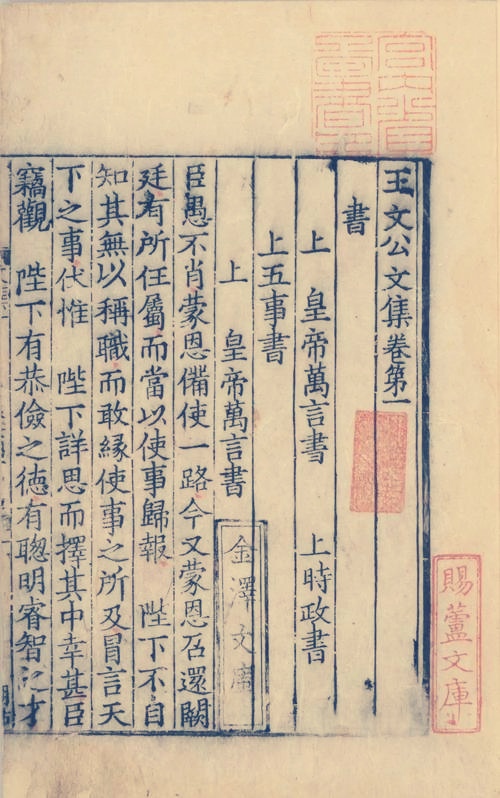 王文公文集卷第一
書
上　皇帝萬言書　上時政書
上五事書
上　皇帝萬言書
臣愚不肖蒙恩備使一路今又蒙恩召還闕
廷有所任屬而當以使事歸報　陛下不自
知其無以稱職而敢緣使事之所及冒言天
下之事伏惟　陛下詳思而擇其中幸甚臣
竊觀　陛下有恭儉之德有聰明睿智之才
金澤文庫
賜蘆文庫